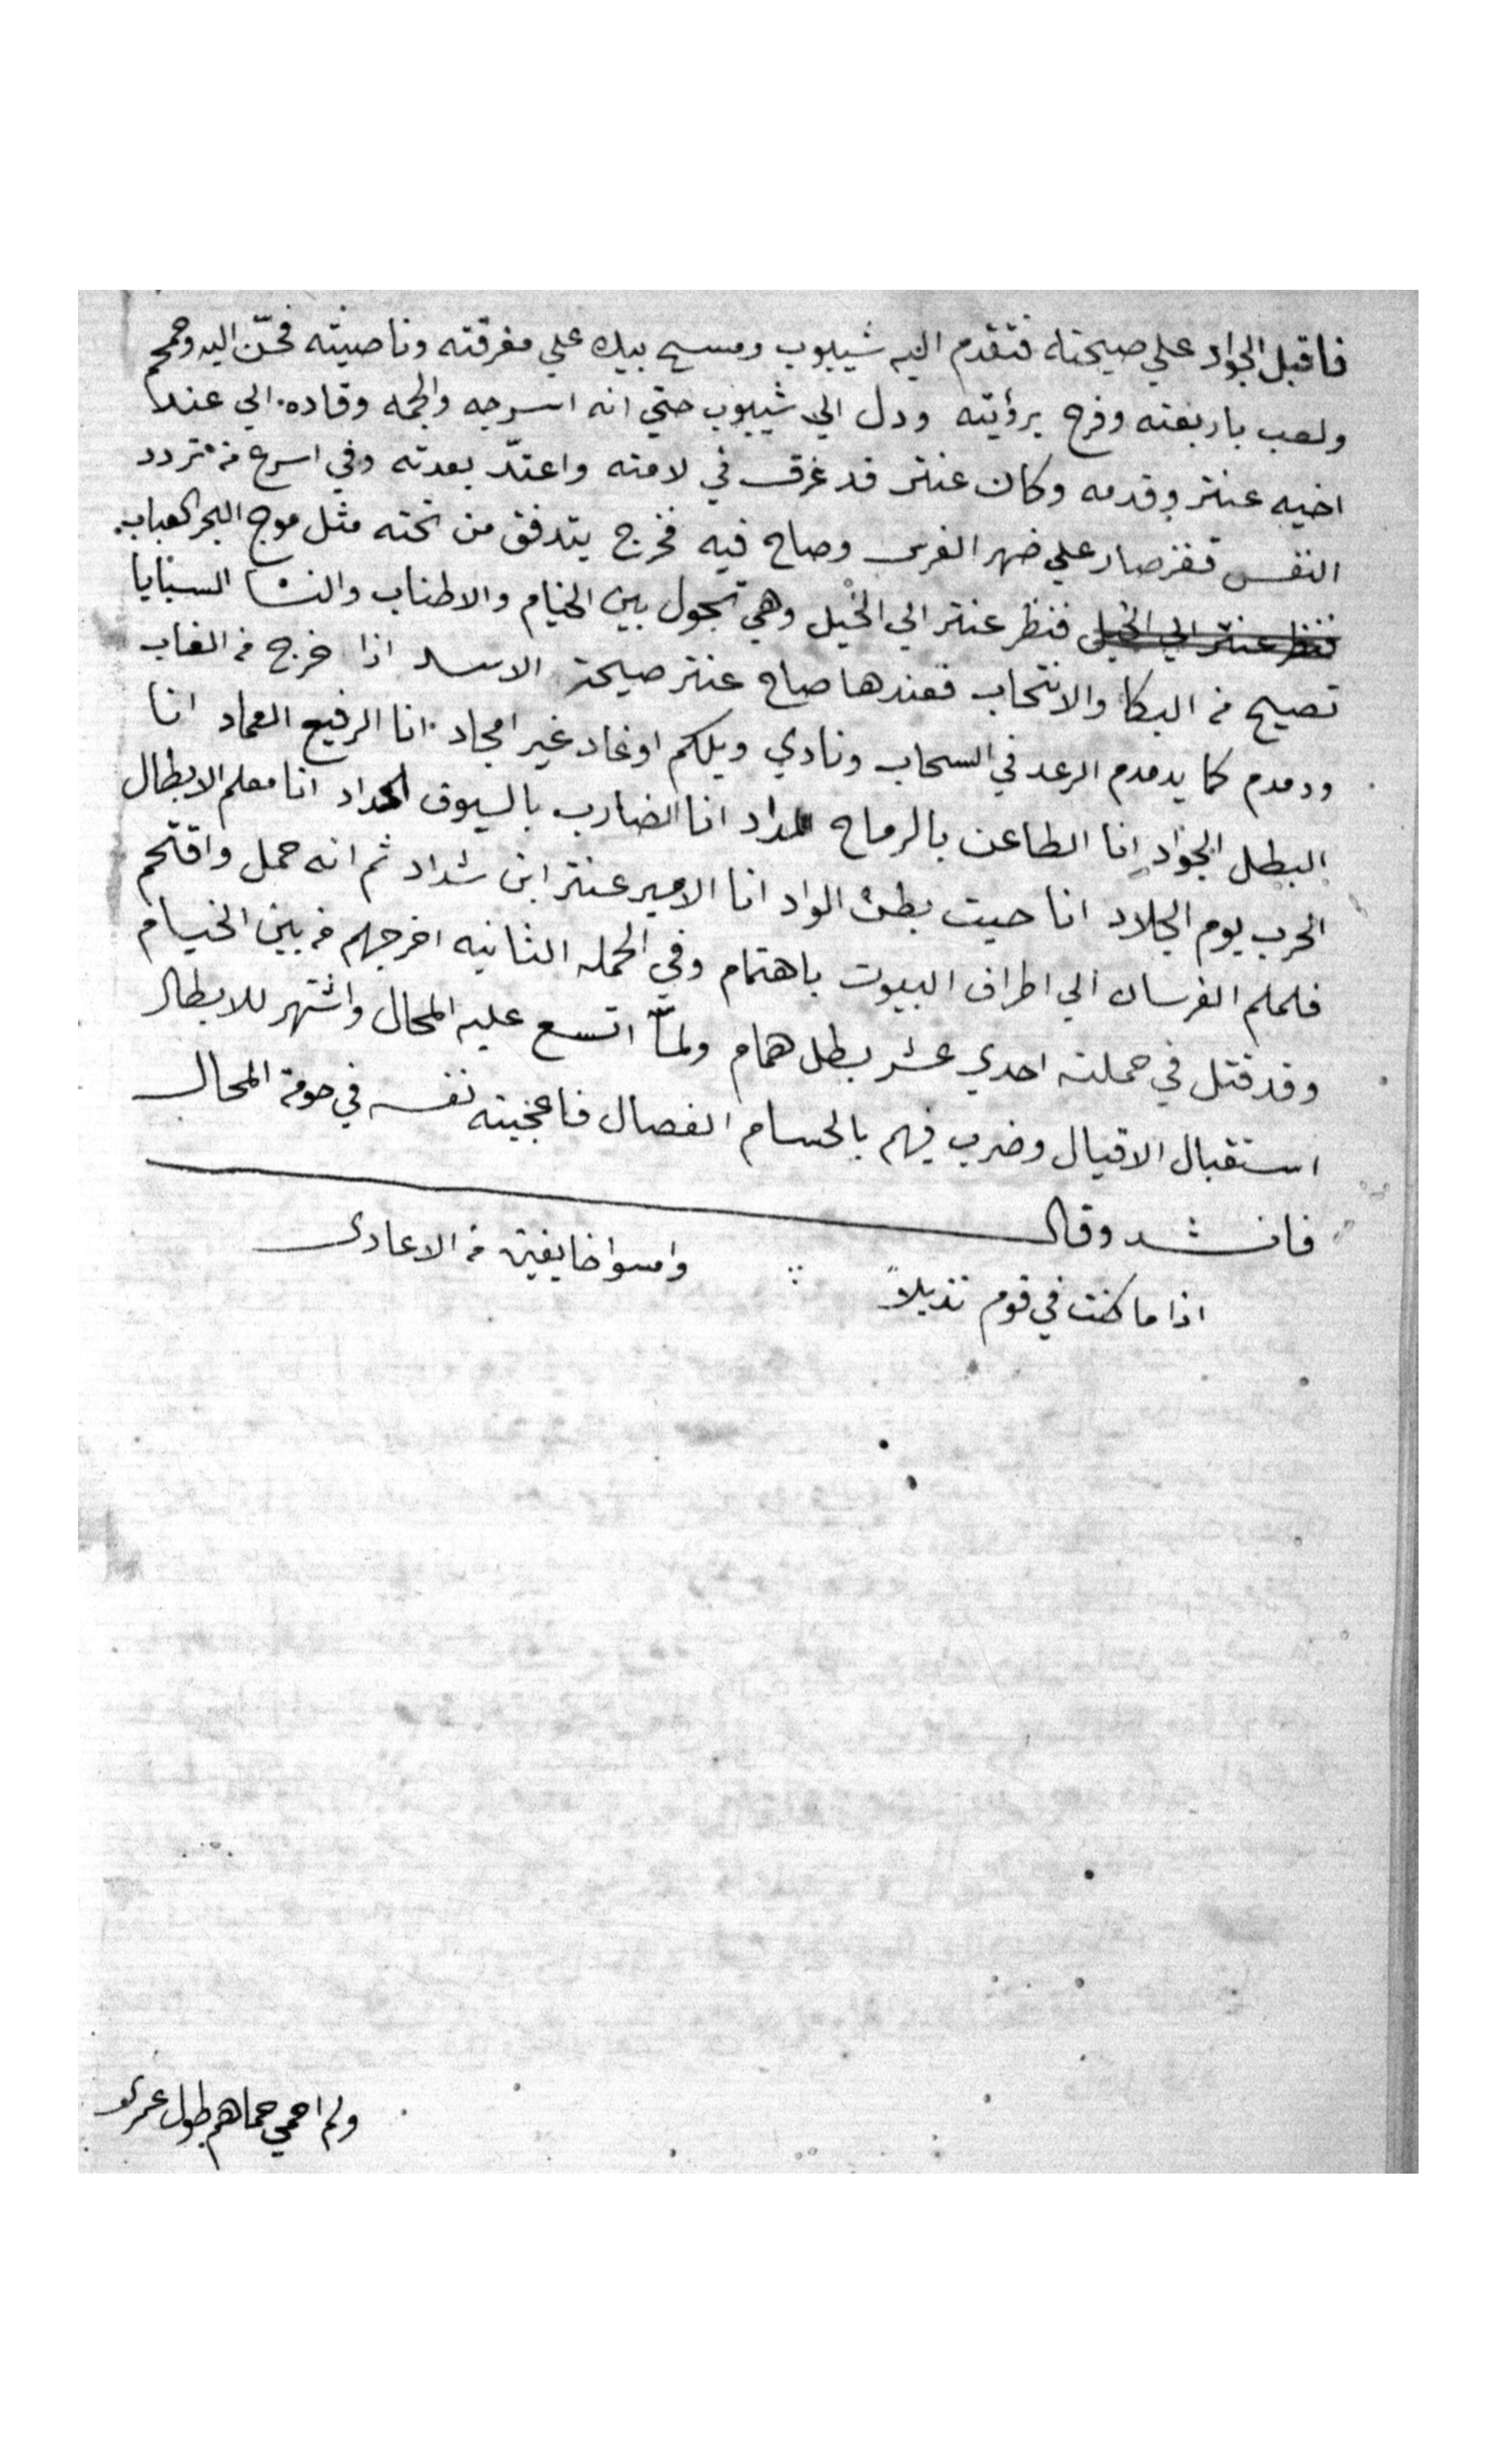 فاقبل الجواد علي صيحته فتقدم اليه شيبوب ومسح بيده علي مفرقته وناصيته فحنّ اليه وحمحم
ولعب باربعته وفرح برؤيته ودل الي شيبوب حتي انه اسرجه والجمه وقاده الي عند
اخيه عنتر وقدمه وكان عنتر قد غرق في لامته واعتدّ بعدته وفي اسرع من تردد
النفس قفز صار علي ضهر الفرس وصاح فيه فخرج يتدفق من تحته مثل موج البحر العباب
فنظر عنتر الي الخيل فنظر عنتر الي الخيل وهي تجول بين الخيام والاطناب والنسا السبايا
تصيح من البكا والانتحاب فعندها صاح عنتر صيحة الاسد اذا خرج من الغاب
ودمدم كما يدمدم الرعد في السحاب ونادي ويلكم اوغاد غير امجاد انا الرفيع العماد انا
البطل الجواد انا الطاعن بالرماح المداد انا الضارب بالسيوف الحداد انا معلم الابطال
الحرب يوم الجلاد انا حيت بطن الواد انا الامير عنتر ابن شداد ثم انه حمل واقتحم
فلملم الفرسان الي اطراف البيوت باهتمام وفي الحمله الثانيه اخرجهم من بين الخيام
وقد قتل في حملته احدي عشر بطل همام ولمّا اتسع عليه المجال واشتهر للابطال
استقبال الاقيال وضرب فيهم بالحسام الفصال فاعجبته نفسه في حومة المجال
فانشد وقال
اذا ما كنت في قوم نذيلاً وامسوا خايفين من الاعادي
ولم احمي حماهم طول عمري